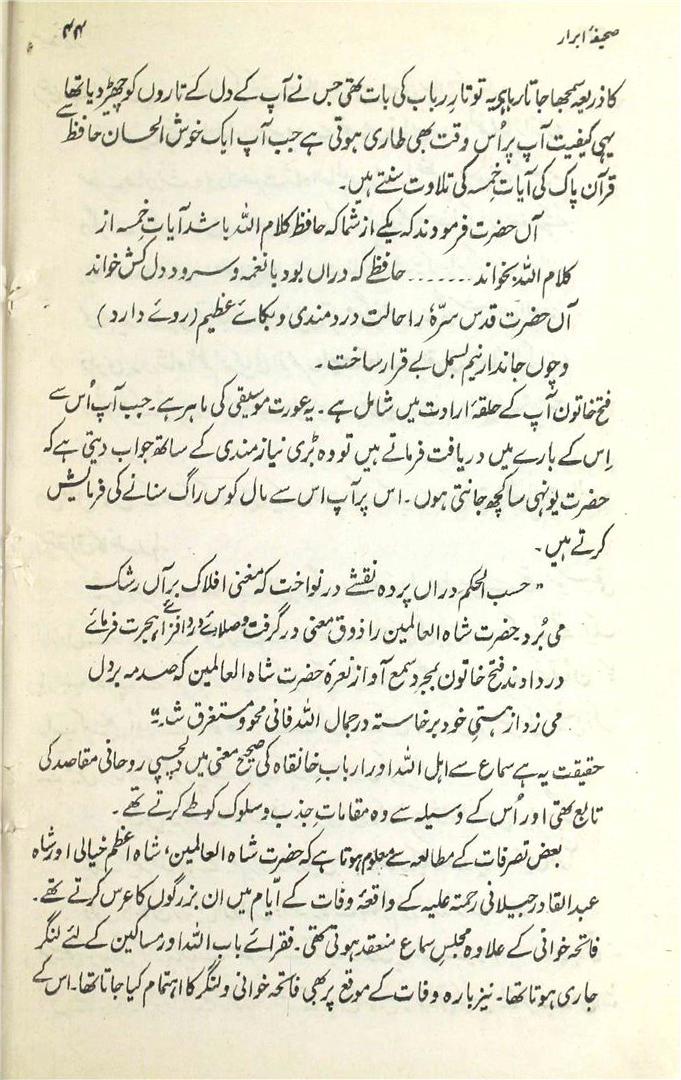 صحیفۂ ابرار
۴۴
کا ذریعہ سمجھا جاتا رہا ہے یہ تو تارِ رباب کی بات تھی جس نے آپ کے دل کے تاروں کو چھیڑ دیا تھا
یہی کیفیت آپ پر اُس وقت بھی طاری ہوتی ہے جب آپ ایک خوش الحان حافظ سے
قرآن پاک کی آیاتِ خمسہ کی تلاوت سنتے ہیں۔
آں حضرت فرمودند کہ یکے از شما کہ حافظ کلام اللہ باشد آیاتِ خمسہ از
کلام اللہ بخواند ....... حافظے کہ دراں بود با نغمہ و سرود دل کش خواند
آں حضرت قدس سرّہٗ را حالت دردمندی و بکائے عظیم (روئے دارد)
و چوں جاندار نیم بسمل بے قرار ساخت۔
فتح خاتون آپ کے حلقۂ ارادت میں شامل ہے۔ یہ عورت موسیقی کی ماہر ہے۔ جب آپ اُس سے
اِس کے بارے میں دریافت فرماتے ہیں تو وہ بڑی نیازمندی کے ساتھ جواب دیتی ہے کہ
حضرت یونہی سا کچھ جانتی ہوں۔ اس پر آپ اس سے مال کوس راگ سنانے کی فرمائش
کرتے ہیں۔
"حسب الحکم دراں پردہ نقشے در نواخت کہ مغنی افلاک بر آں رشک
می بُرد حضرت شاہ العالمین را ذوق معنی در گرفت و صلائے درد افزائے ہجرت فرمائے
در دادند فتح خاتون بمجرد سمع آواز نعرۂ حضرت شاہ العالمین کہ صدمہ بر دل
می زد از ہستیِ خود برخاستہ در جمال اللہ فانی محو و مستغرق شد"
حقیقت یہ ہے سماع سے اہل اللہ اور اربابِ خانقاہ کی صحیح معنی میں دلچسپی روحانی مقاصد کی
تابع تھی اور اُس کے وسیلہ سے وہ مقاماتِ جذب و سلوک کو طے کرتے تھے۔
بعض تصرفات کے مطالعہ سے معلوم ہوتا ہے کہ حضرت شاہ العالمین، شاہ اعظم خیالی اور شاہ
عبدالقادر جیلانی رحمتہ علیہ کے واقعۂ وفات کے ایّام میں ان بزرگوں کا عرس کرتے تھے۔
فاتحہ خوانی کے علاوہ مجلسِ سماع منعقد ہوتی تھی۔ فقرائے باب اللہ اور مساکین کے لئے لنگر
جاری ہوتا تھا۔ نیز بارہ وفات کے موقع پر بھی فاتحہ خوانی و لنگر کا اہتمام کیا جاتا تھا۔ اس کے